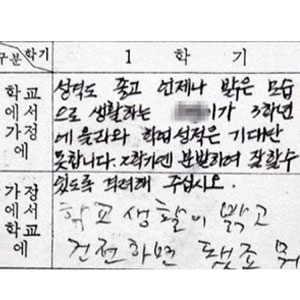 구분 학기 1 학 기
학교에서 가정에
성격도 좋고 언제나 밝은 모습
으로 생활하는 이가 3학년
에 올라와 학업성적은 기대만
못합니다. 2학기엔 분발하여 잘할수
있도록 격려해 주십시오.
가정에서 학교에
학교생활이 밝고
건전하면 됐죠 뭐